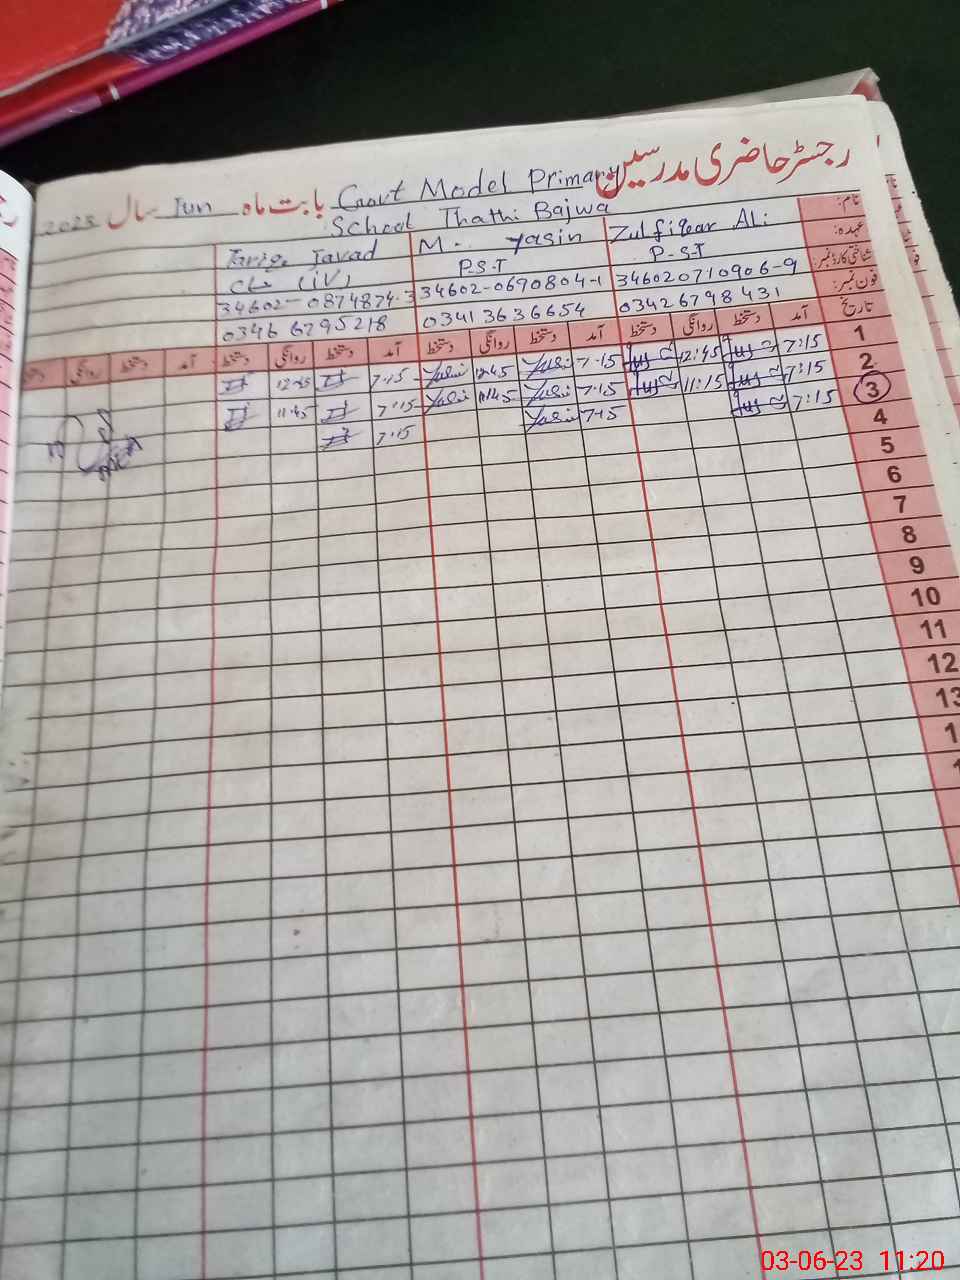 رجسٹر حاضری مدرسین Govt Model Primary بابت ماہ Jun سال 2023
School Thathi Bajwa
نام: Zulfiqar Ali M. Yasin Tariq Javad
عہدہ: P-S-T P-S-T (iv)
شناختی کارڈ نمبر: 346020710906-9 34602-0690804-1 34602-0874874-3
فون نمبر: 03426798431 03413636654 0346 6795218
تاریخ آمد دستخط روانگی دستخط آمد دستخط روانگی دستخط آمد دستخط روانگی دستخط آمد دستخط روانگی دستخط
1 7:15 12:45 7:15 Yasin 12:45 Yasin 7:15 12:45
2 7:15 11:15 7:15 Yasin 11:45 Yasin 7:15 11:45
3 7:15 7:15 Yasin 7:15
4
5
6
7
8
9
10
11
12
13
03-06-23 11:20